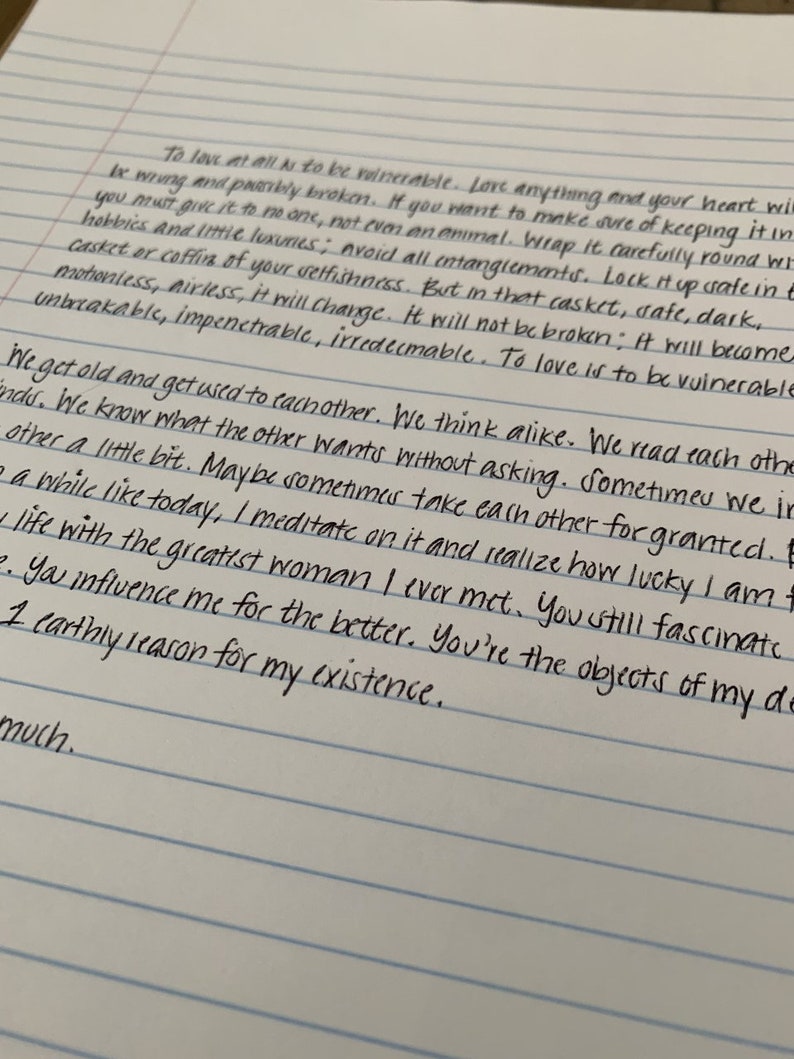 To love at all is to be vulnerable. Love anything and your heart wil
be wrung and possibly broken. If you want to make sure of keeping it in
you must give it to no one, not even an animal. Wrap it carefully round wi
hobbies and little luxuries; avoid all entanglements. Lock it up safe in t
casket or coffin of your selfishness. But in that casket, safe, dark,
motionless, airless, it will change. It will not be broken; it will become
unbreakable, impenetrable, irredeemable. To love is to be vulnerable
We get old and get used to each other. We think alike. We read each othe
inds. We know what the other wants without asking. Sometimes we ir
other a little bit. Maybe sometimes take each other for granted.
a while like today, I meditate on it and realize how lucky I am t
life with the greatest woman I ever met. You still fascinate
e. You influence me for the better. You're the objects of my de
1 earthly reason for my existence.
much.